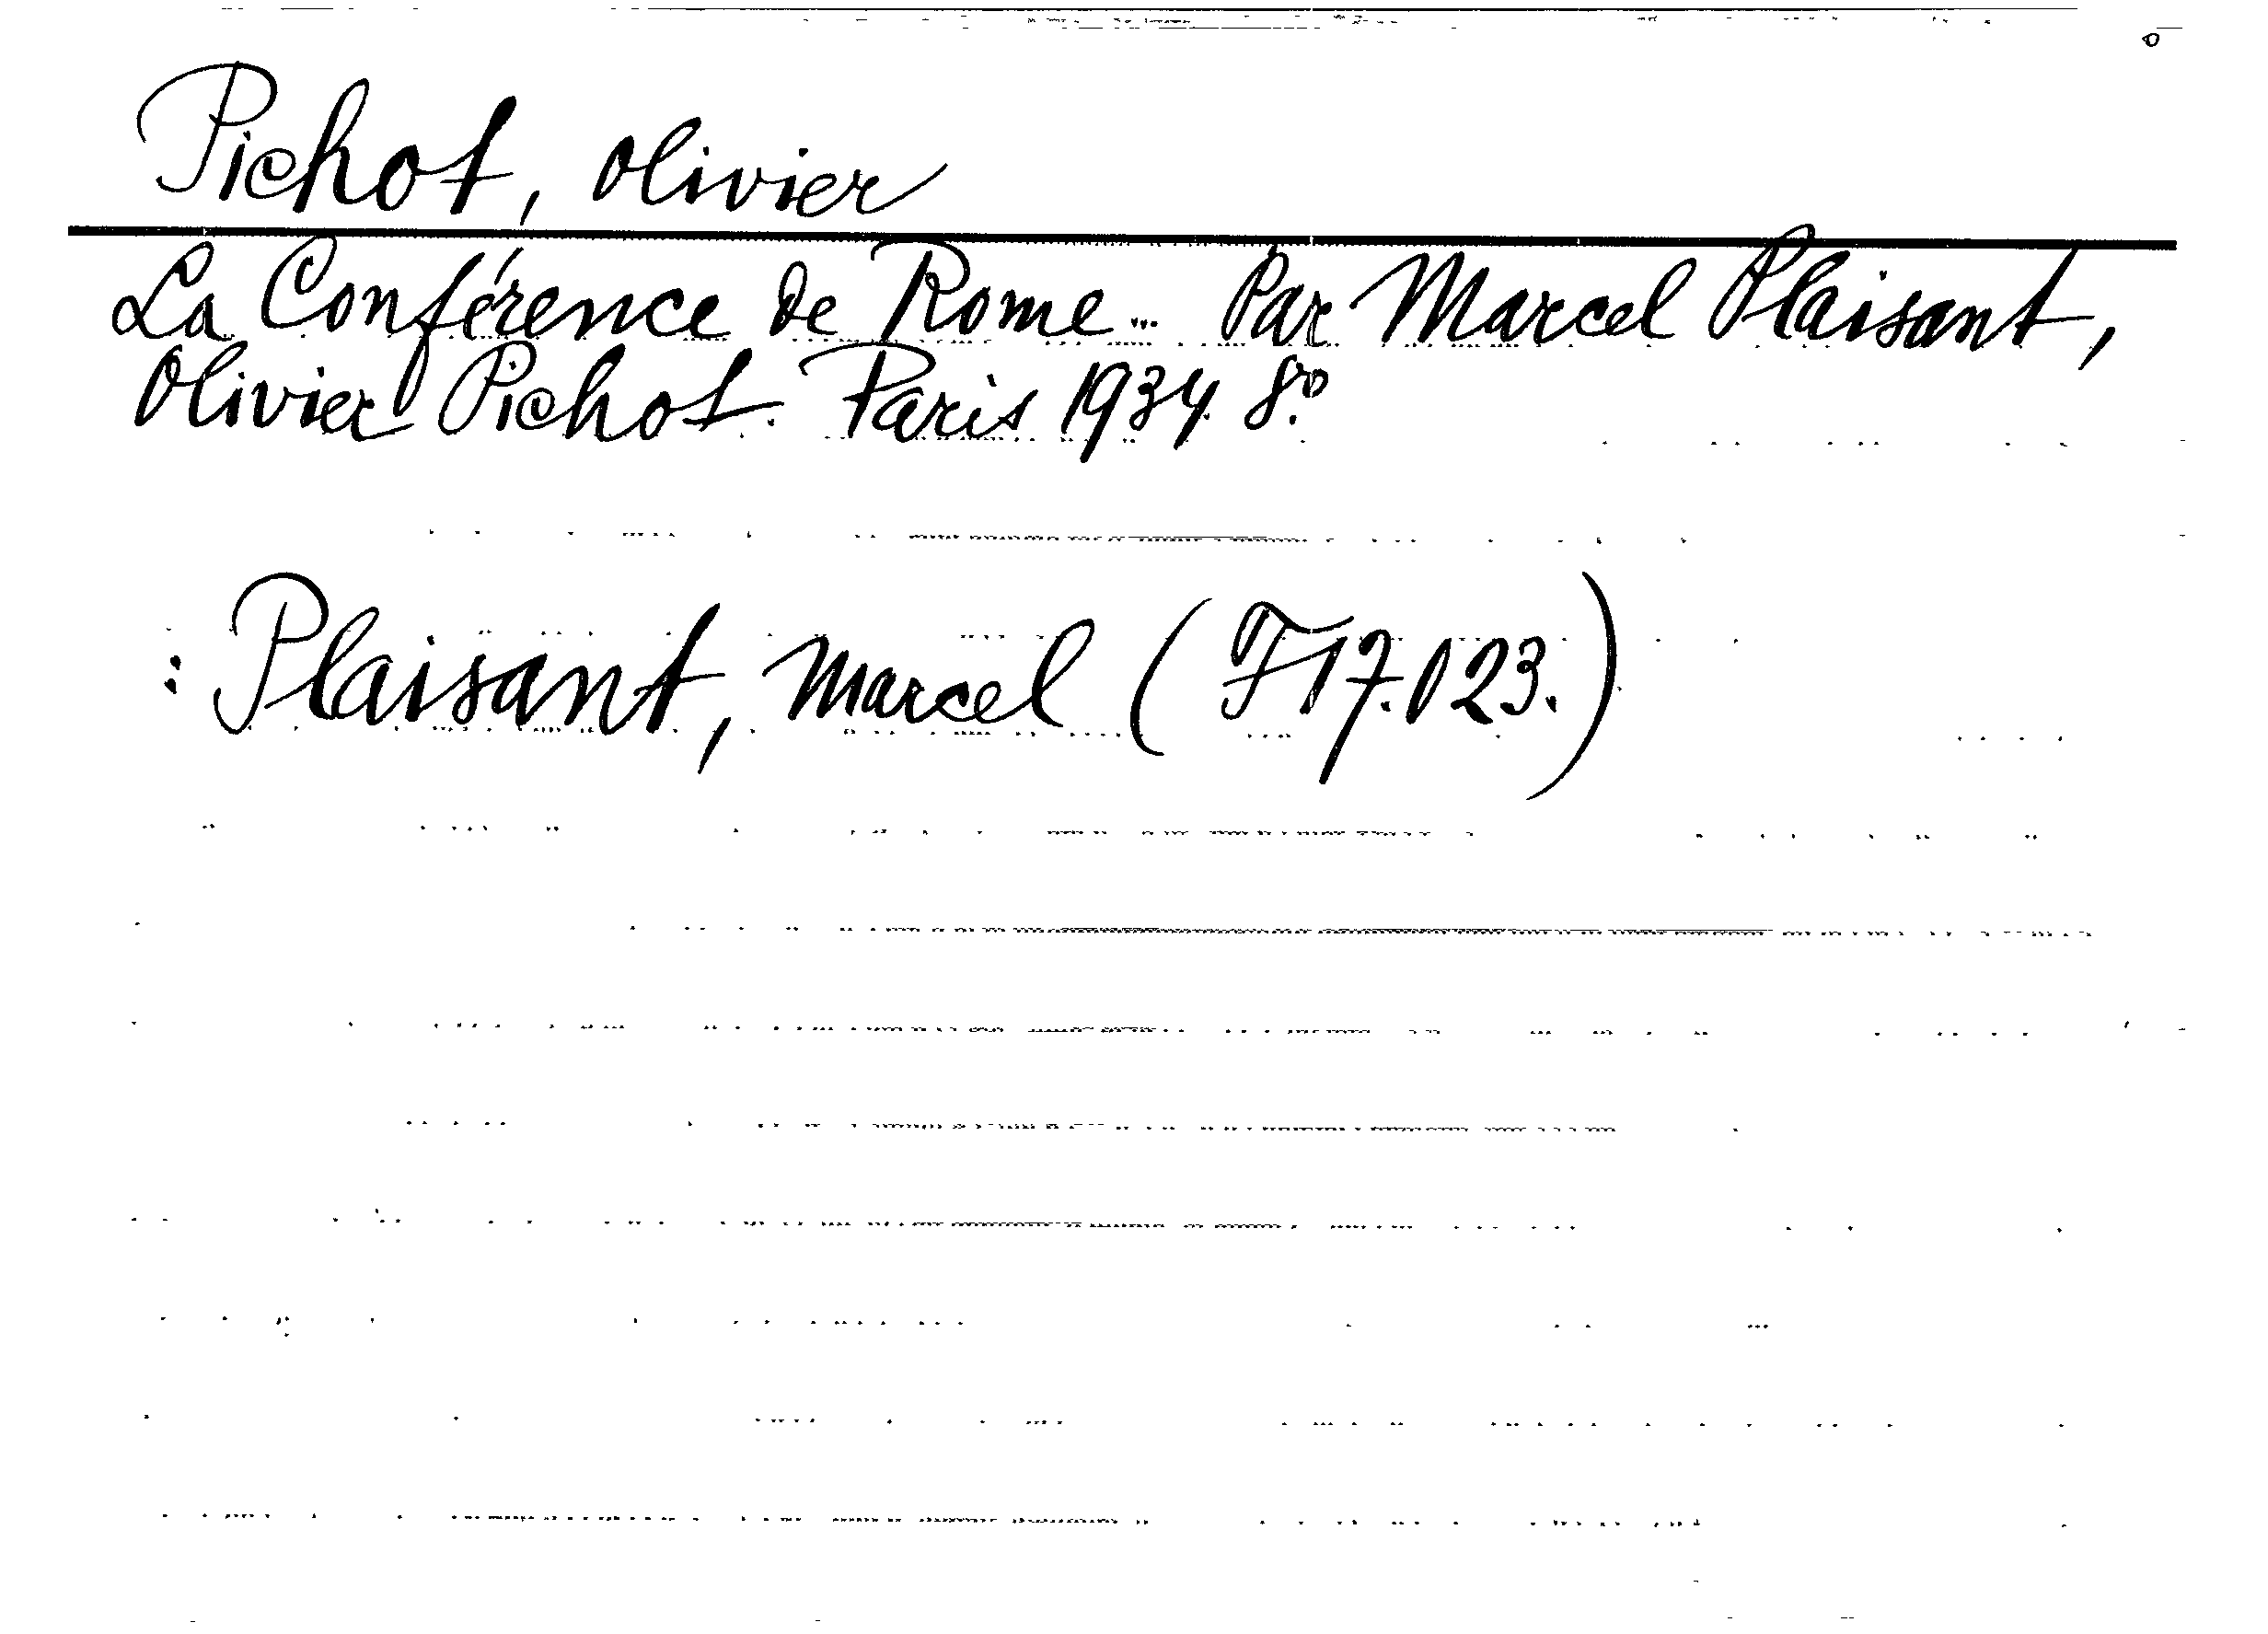 Pichot, Olivier
La Conférence de Rome... Par Marcel Plaisant,
Olivier Pichot. Paris 1934. 8:o
: Plaisant, Marcel (F17.023.)